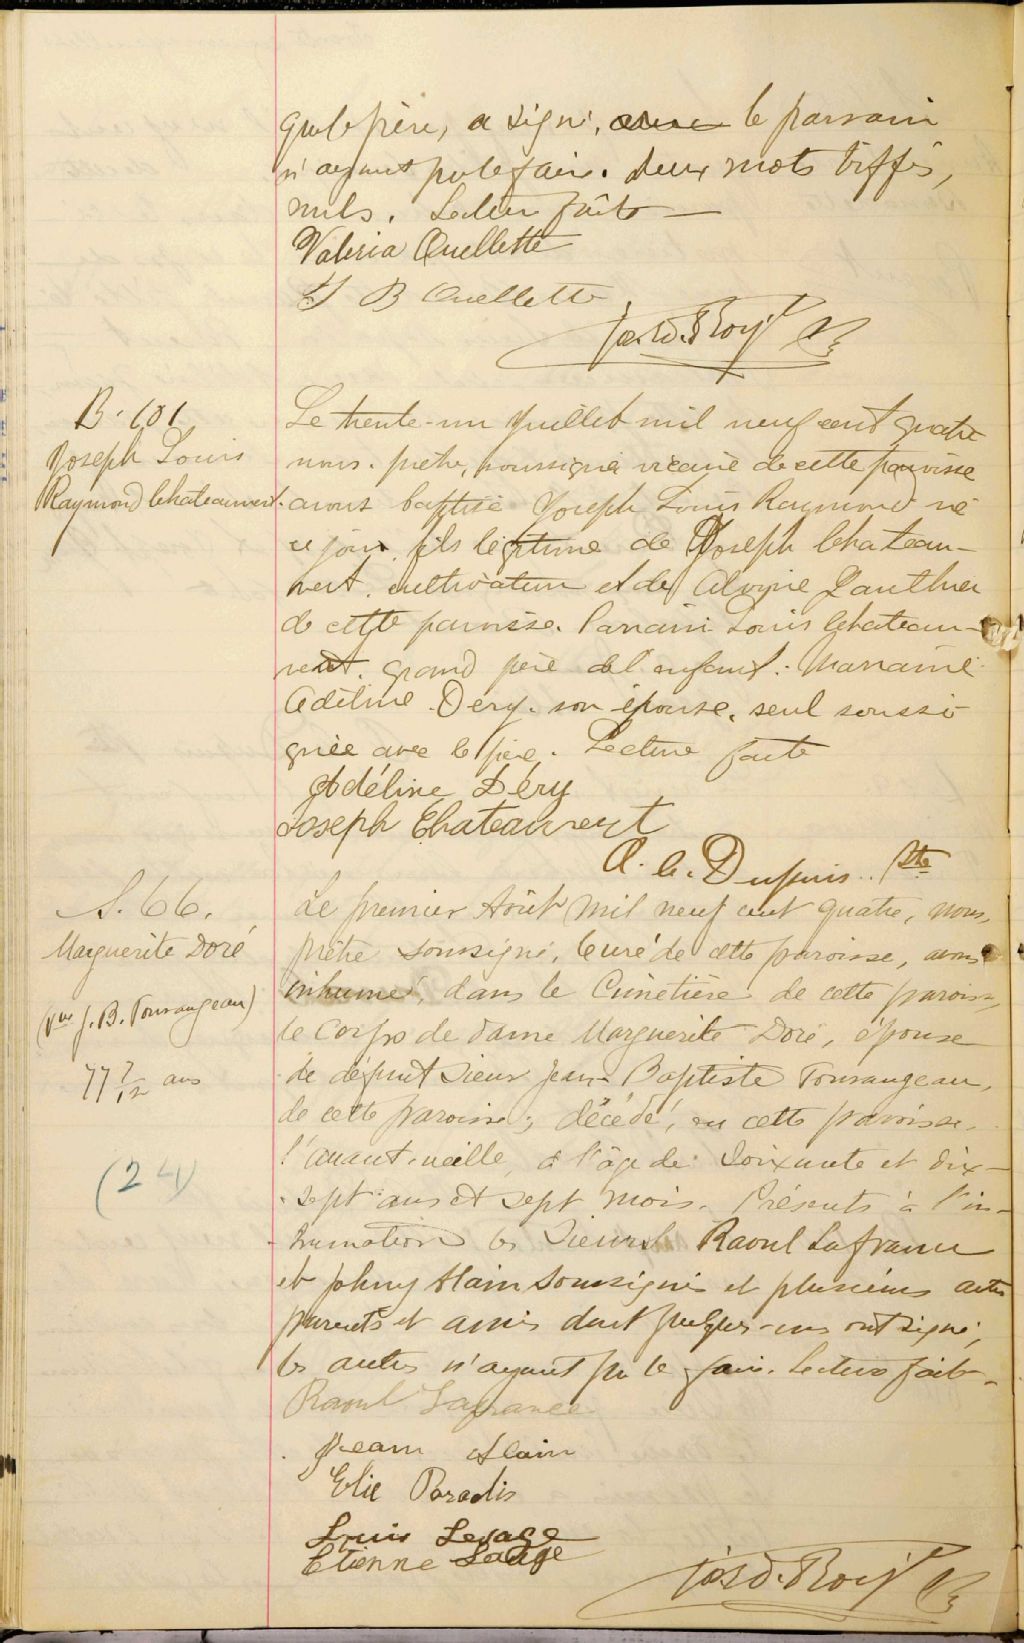 que le père, a signé, avec le parrain
n'ayant pu le faire. deux mots biffés,
nuls. Lecture faite —
Valeria Ouellette
J B Ouellette
Jos. D. Roy Ptre
B. 101
Joseph Louis
Raymond Chateauvert.
Le trente-un Juillet mil neuf cent quatre
nous. prêtre, soussigné vicaire de cette paroisse
avons baptisé Joseph Louis Raymond né
ce jour, fils légitime de Joseph Chateau-
vert. cultivateur et de Alvine Gauthier
de cette paroisse. Parrain Louis Chateau-
vert. grand père de l'enfant. Marraine
Adeline Dery. son épouse, seul soussi-
gnée avec le père. Lecture faite
Adéline Déry
Joseph Chateauvert
A. C. Dupuis. Ptre
S. 66.
Marguerite Doré
(Vve J. B. Tourangeau)
77 7/12 ans
(24)
Le premier Août mil neuf cent quatre, nous,
prêtre soussigné, Curé de cette paroisse, avons
inhumé, dans le Cimetière de cette paroisse,
le corps de dame Marguerite Doré, épouse
de défunt Sieur Jean-Baptiste Tourangeau,
de cette paroisse; décédé, en cette paroisse,
l'avant-veille, à l'âge de Soixante et dix-
sept ans et sept mois. Présents à l'in-
humation les Sieurs Raoul Lafrance
et Johny Alain Soussignés et plusieurs autres
parents et amis dont quelques-uns ont signé,
les autres n'ayant pu le faire. Lecture faite.
Raoul Lafrance
Jean Alain
Elie Paradis
Louis Lesage
Etienne Sauge
Jos. D. Roy Ptre